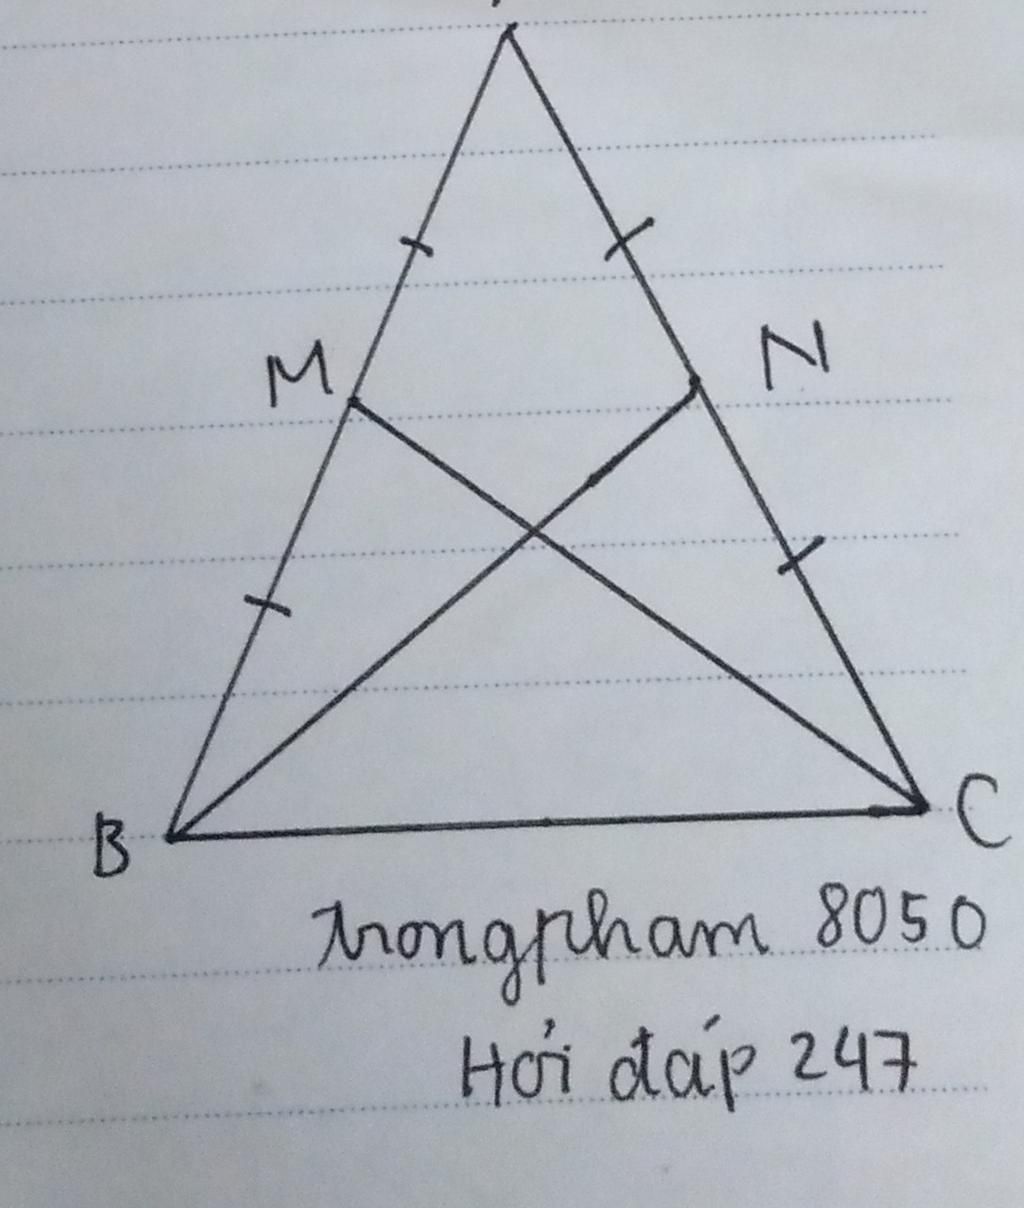 M N
B C
trongpham 8050
Hỏi đáp 247